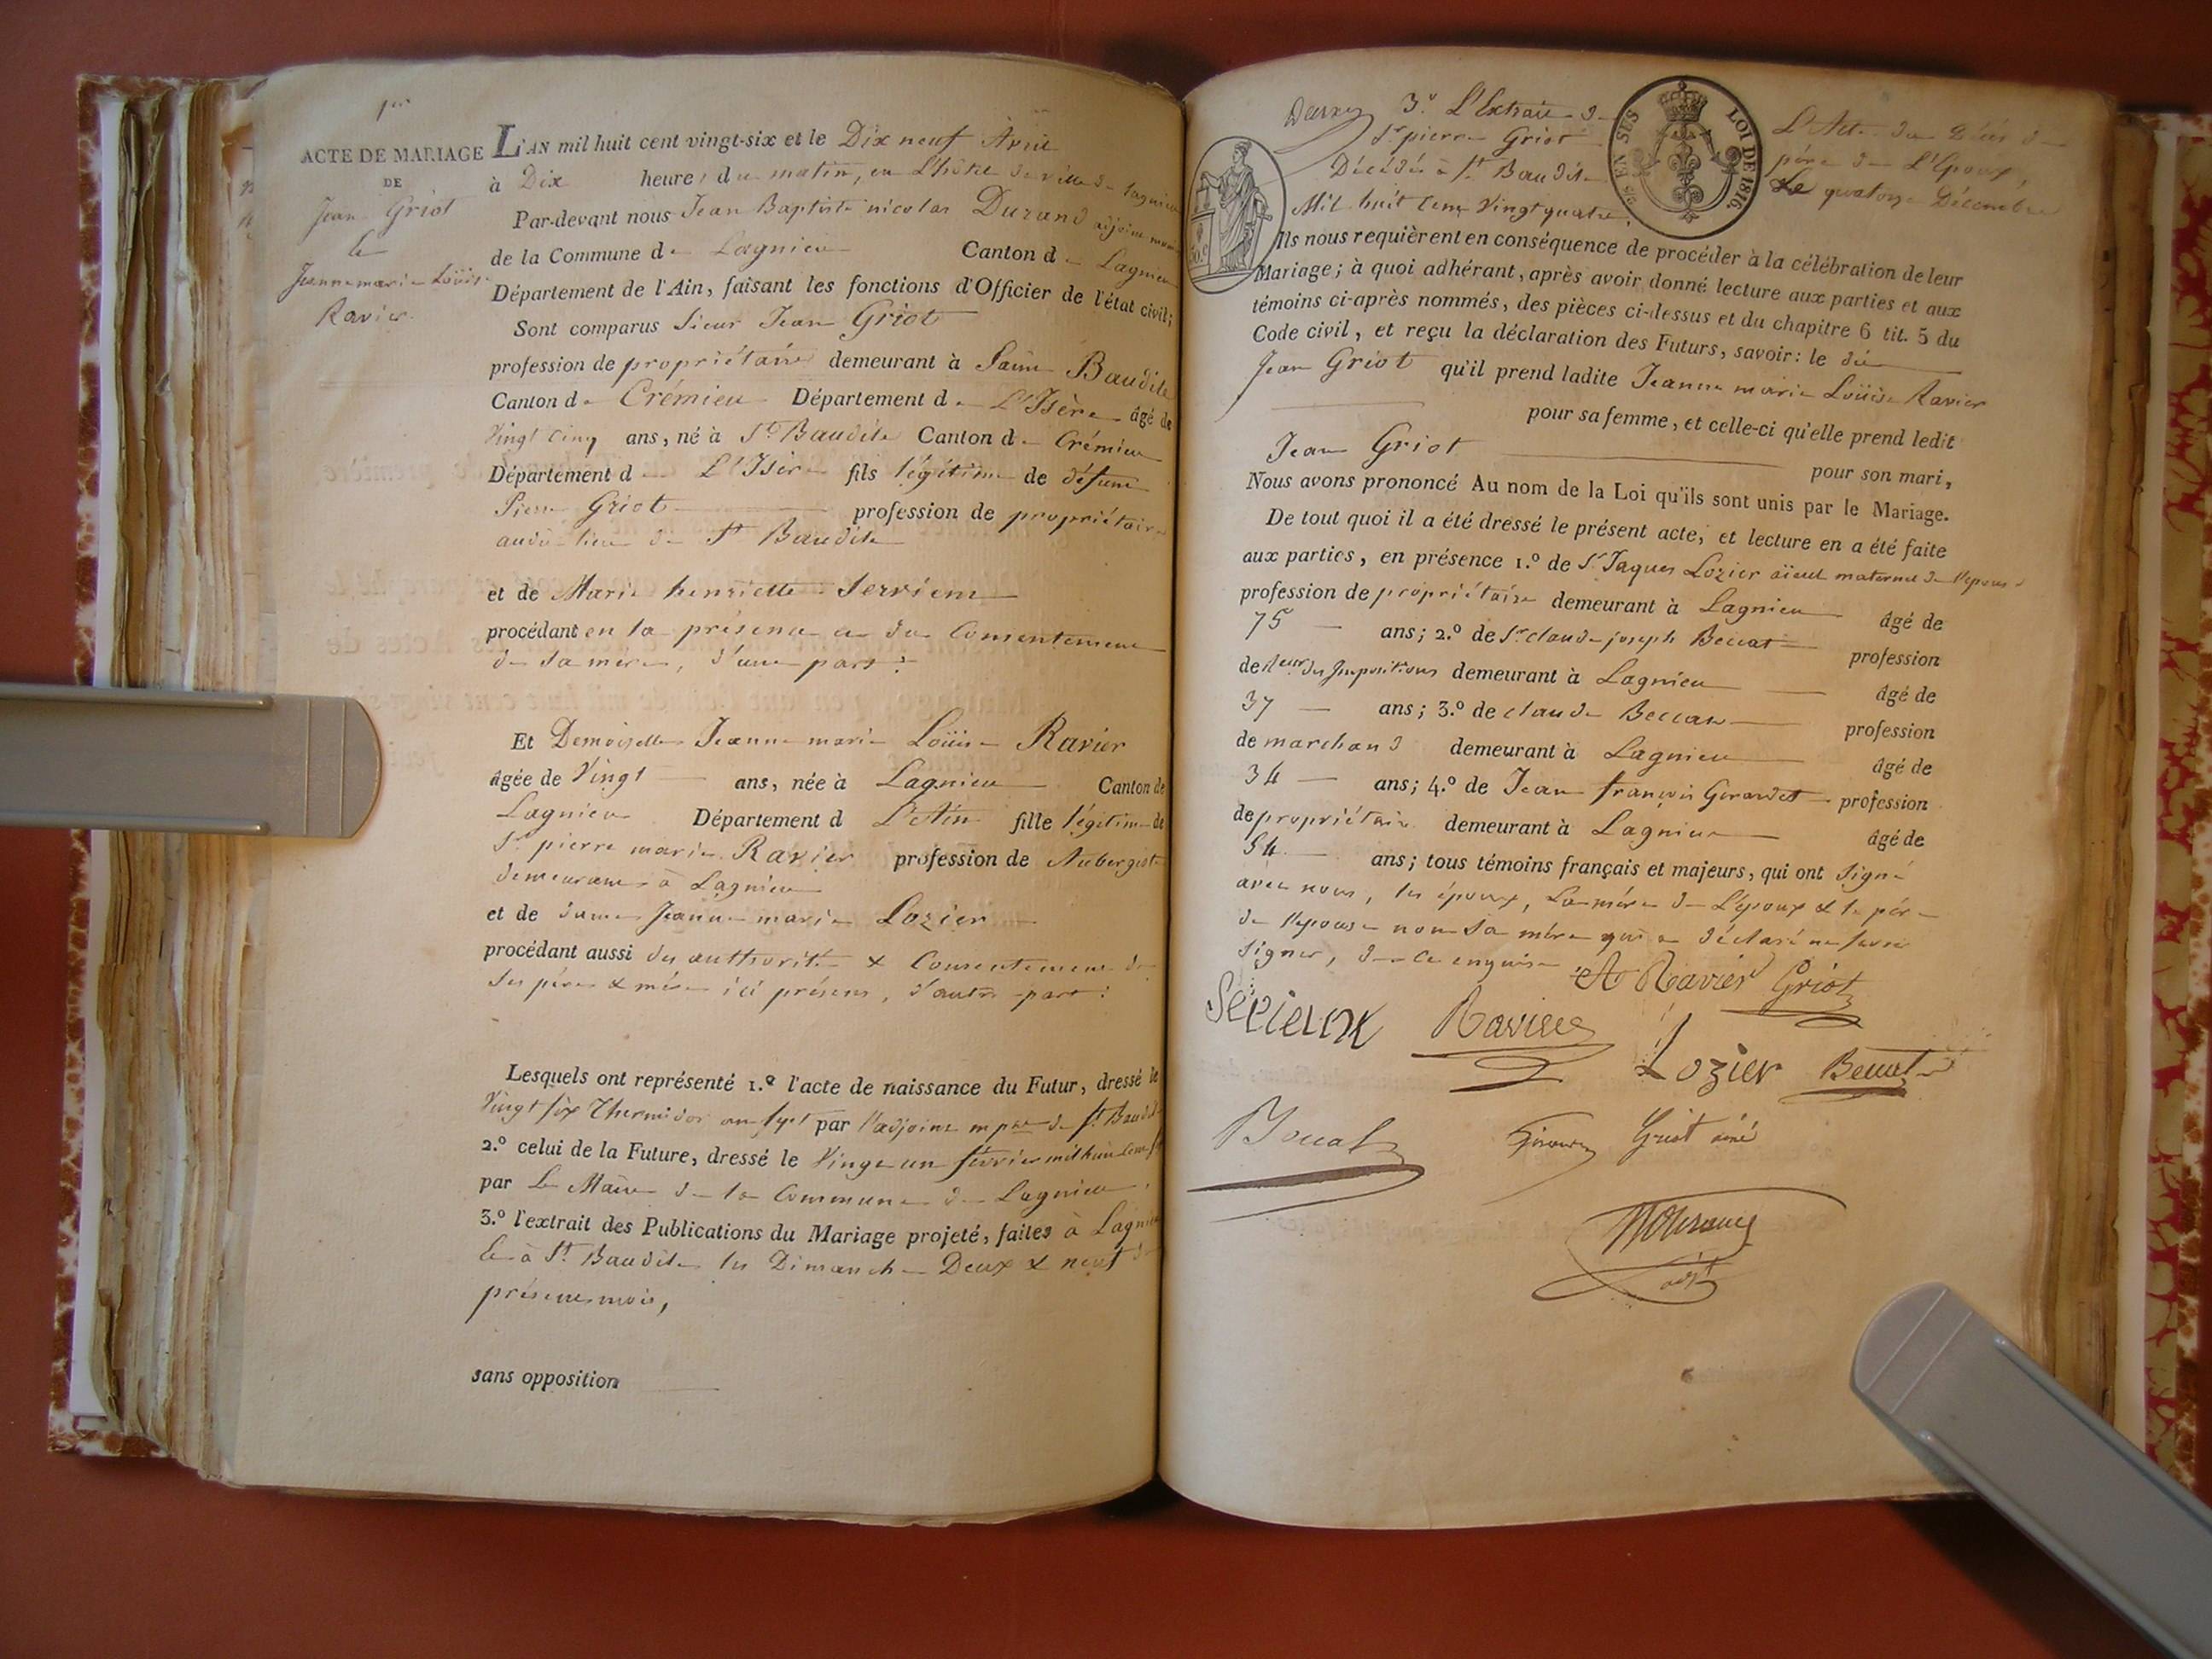 1er
ACTE DE MARIAGE
DE
Jean Griot
Et
Jeanne marie Loüise
Ravier.
L'AN mil huit cent vingt-six et le Dix neuf Avril
à Dix heures du matin, en L'hôtel de ville de Lagnieu
Par-devant nous Jean Baptiste nicolas Durand adjoint
de la Commune de Lagnieu Canton de Lagnieu
Département de l'Ain, faisant les fonctions d'Officier de l'état civil;
Sont comparus Sieur Jean Griot
profession de propriétaire demeurant à Saint Baudile
Canton de Crémieu Département de L'Isère âgé de
Vingt cinq ans, né à St Baudile Canton de Crémieu
Département de L'Isère fils légitime de défunt
Pierre Griot profession de propriétaire
audit lieu de St Baudile
et de Marie henriette Serrient
procédant en la présence et du Consentement
de sa mère, d'une part:
Et Demoiselle Jeanne marie Loüise Ravier
âgée de Vingt ans, née à Lagnieu Canton de
Lagnieu Département d L'Ain fille légitime de
Sr pierre marie Ravier profession de Aubergiste
demeurant à Lagnieu
et de dame Jeanne marie Lozier
procédant aussi des authorité & Consentement de
ses père & mère ici présens, d'autre part:
Lesquels ont représenté 1.º l'acte de naissance du Futur, dressé le
Vingt six Thermidor an sept par l'adjoint mpal de St Baudile
2.º celui de la Future, dressé le Vingt un février mil huit cent six
par Le Maire de la Commune de Lagnieu,
3.º l'extrait des Publications du Mariage projeté, faites à Lagnieu
et à St. Baudile les Dimanche Deux & neuf du
présent mois,
sans opposition
3º L'Extrait de L'Acte de Décès de
Sr pierre Griot père de L'Epoux,
Décédé à St Baudile Le quatorze Décembre
Mil huit Cent Vingt quatre.
EN SUS
LOI DE 1816.
50.C
Ils nous requièrent en conséquence de procéder à la célébration de leur
Mariage; à quoi adhérant, après avoir donné lecture aux parties et aux
témoins ci-après nommés, des pièces ci-dessus et du chapitre 6 tit. 5 du
Code civil, et reçu la déclaration des Futurs, savoir: le dit
Jean Griot qu'il prend ladite Jeanne marie Loüise Ravier
pour sa femme, et celle-ci qu'elle prend ledit
Jean Griot pour son mari,
Nous avons prononcé Au nom de la Loi qu'ils sont unis par le Mariage.
De tout quoi il a été dressé le présent acte, et lecture en a été faite
aux parties, en présence 1.º de Sr Jaques Lozier aïeul maternel de l'épouse
profession de propriétaire demeurant à Lagnieu âgé de
75 ans; 2.º de Sr claude joseph Beccat profession
de des Impositions demeurant à Lagnieu âgé de
37 ans; 3.º de claude Beccat profession
de marchand demeurant à Lagnieu âgé de
34 ans; 4.º de Jean françois Girardet profession
de propriétaire demeurant à Lagnieu âgé de
54 ans; tous témoins français et majeurs, qui ont signé
avec nous, les époux, La mère de L'époux & le père
de l'épouse non sa mère qui a déclaré ne savoir
signer, de ce enquise
Ravier Griot
Ravier
Lozier Beccat
Griot ainé
adjt